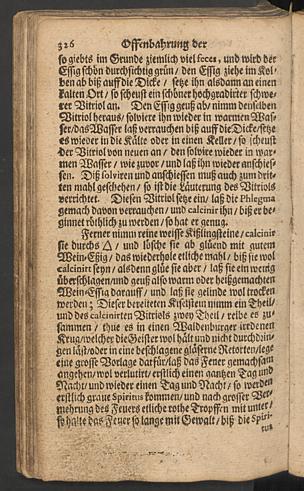 326 Offenbahrung der
so giebts im Grunde ziemlich viel feces, und wird der
Essig schön durchsichtig grün / den Essig ziehe im Kol-
ben ab biß auff die Dicke / setze ihn alsdann an einen
kalten Ort / so scheust ein schöner hochgradirter schwe-
rer Vitriol an. Den Essig geuß ab / nimm denselben
Vitriol heraus / solvire ihn wieder in warmen Was-
ser / das Wasser laß verrauchen biß auff die Dicke / setze
es wieder in die Kälte oder in einen Keller / so scheust
der Vitriol von neuen an / den solvire wieder in war-
men Wasser / wie zuvor / und laß ihn wieder anschies-
sen. Diß solviren und anschiessen muß auch zum drit-
ten mahl geschehen / so ist die Läuterung des Vitriols
verrichtet. Diesen Vitriol setze ein / laß die Phlegma
gemach davon verrauchen / und calcinir ihn / biß er be-
ginnet röthlich zu werden / so hat er genug.
Ferner nimm reine weisse Kißlingsteine / calcinir
sie durchs △ / und lösche sie ab glüend mit gutem
Wein-Essig / das wiederhole etliche mahl / biß sie wol
calcinirt seyn / alsdenn glüe sie aber / laß sie ein wenig
überschlagen / und geuß also warm oder heißgemachten
Wein-Essig darauff / und laß sie gelinde wol trocken
werden; Dieser bereiteten Kißlstein nimm ein Theil /
und des calcinirten Vitriols zwey Theil / reibe es zu-
sammen / thue es in einen Waldenburger irrdenen
Krug / welcher die Geister wol hält und nicht durchdrin-
gen läst / oder in eine beschlagene gläserne Retorten / lege
eine grosse Vorlage darfür / laß das Feuer gemachsam
angehen / wol verlutirt / erstlich einen gantzen Tag und
Nacht / und wieder einen Tag und Nacht / so werden
erstlich graue Spiritus kommen / und nach grosser Ver-
mehrung des Feuers etliche rothe Tropffen mit unter /
so halte das Feuer so lange mit Gewalt / biß die Spiri-
tus